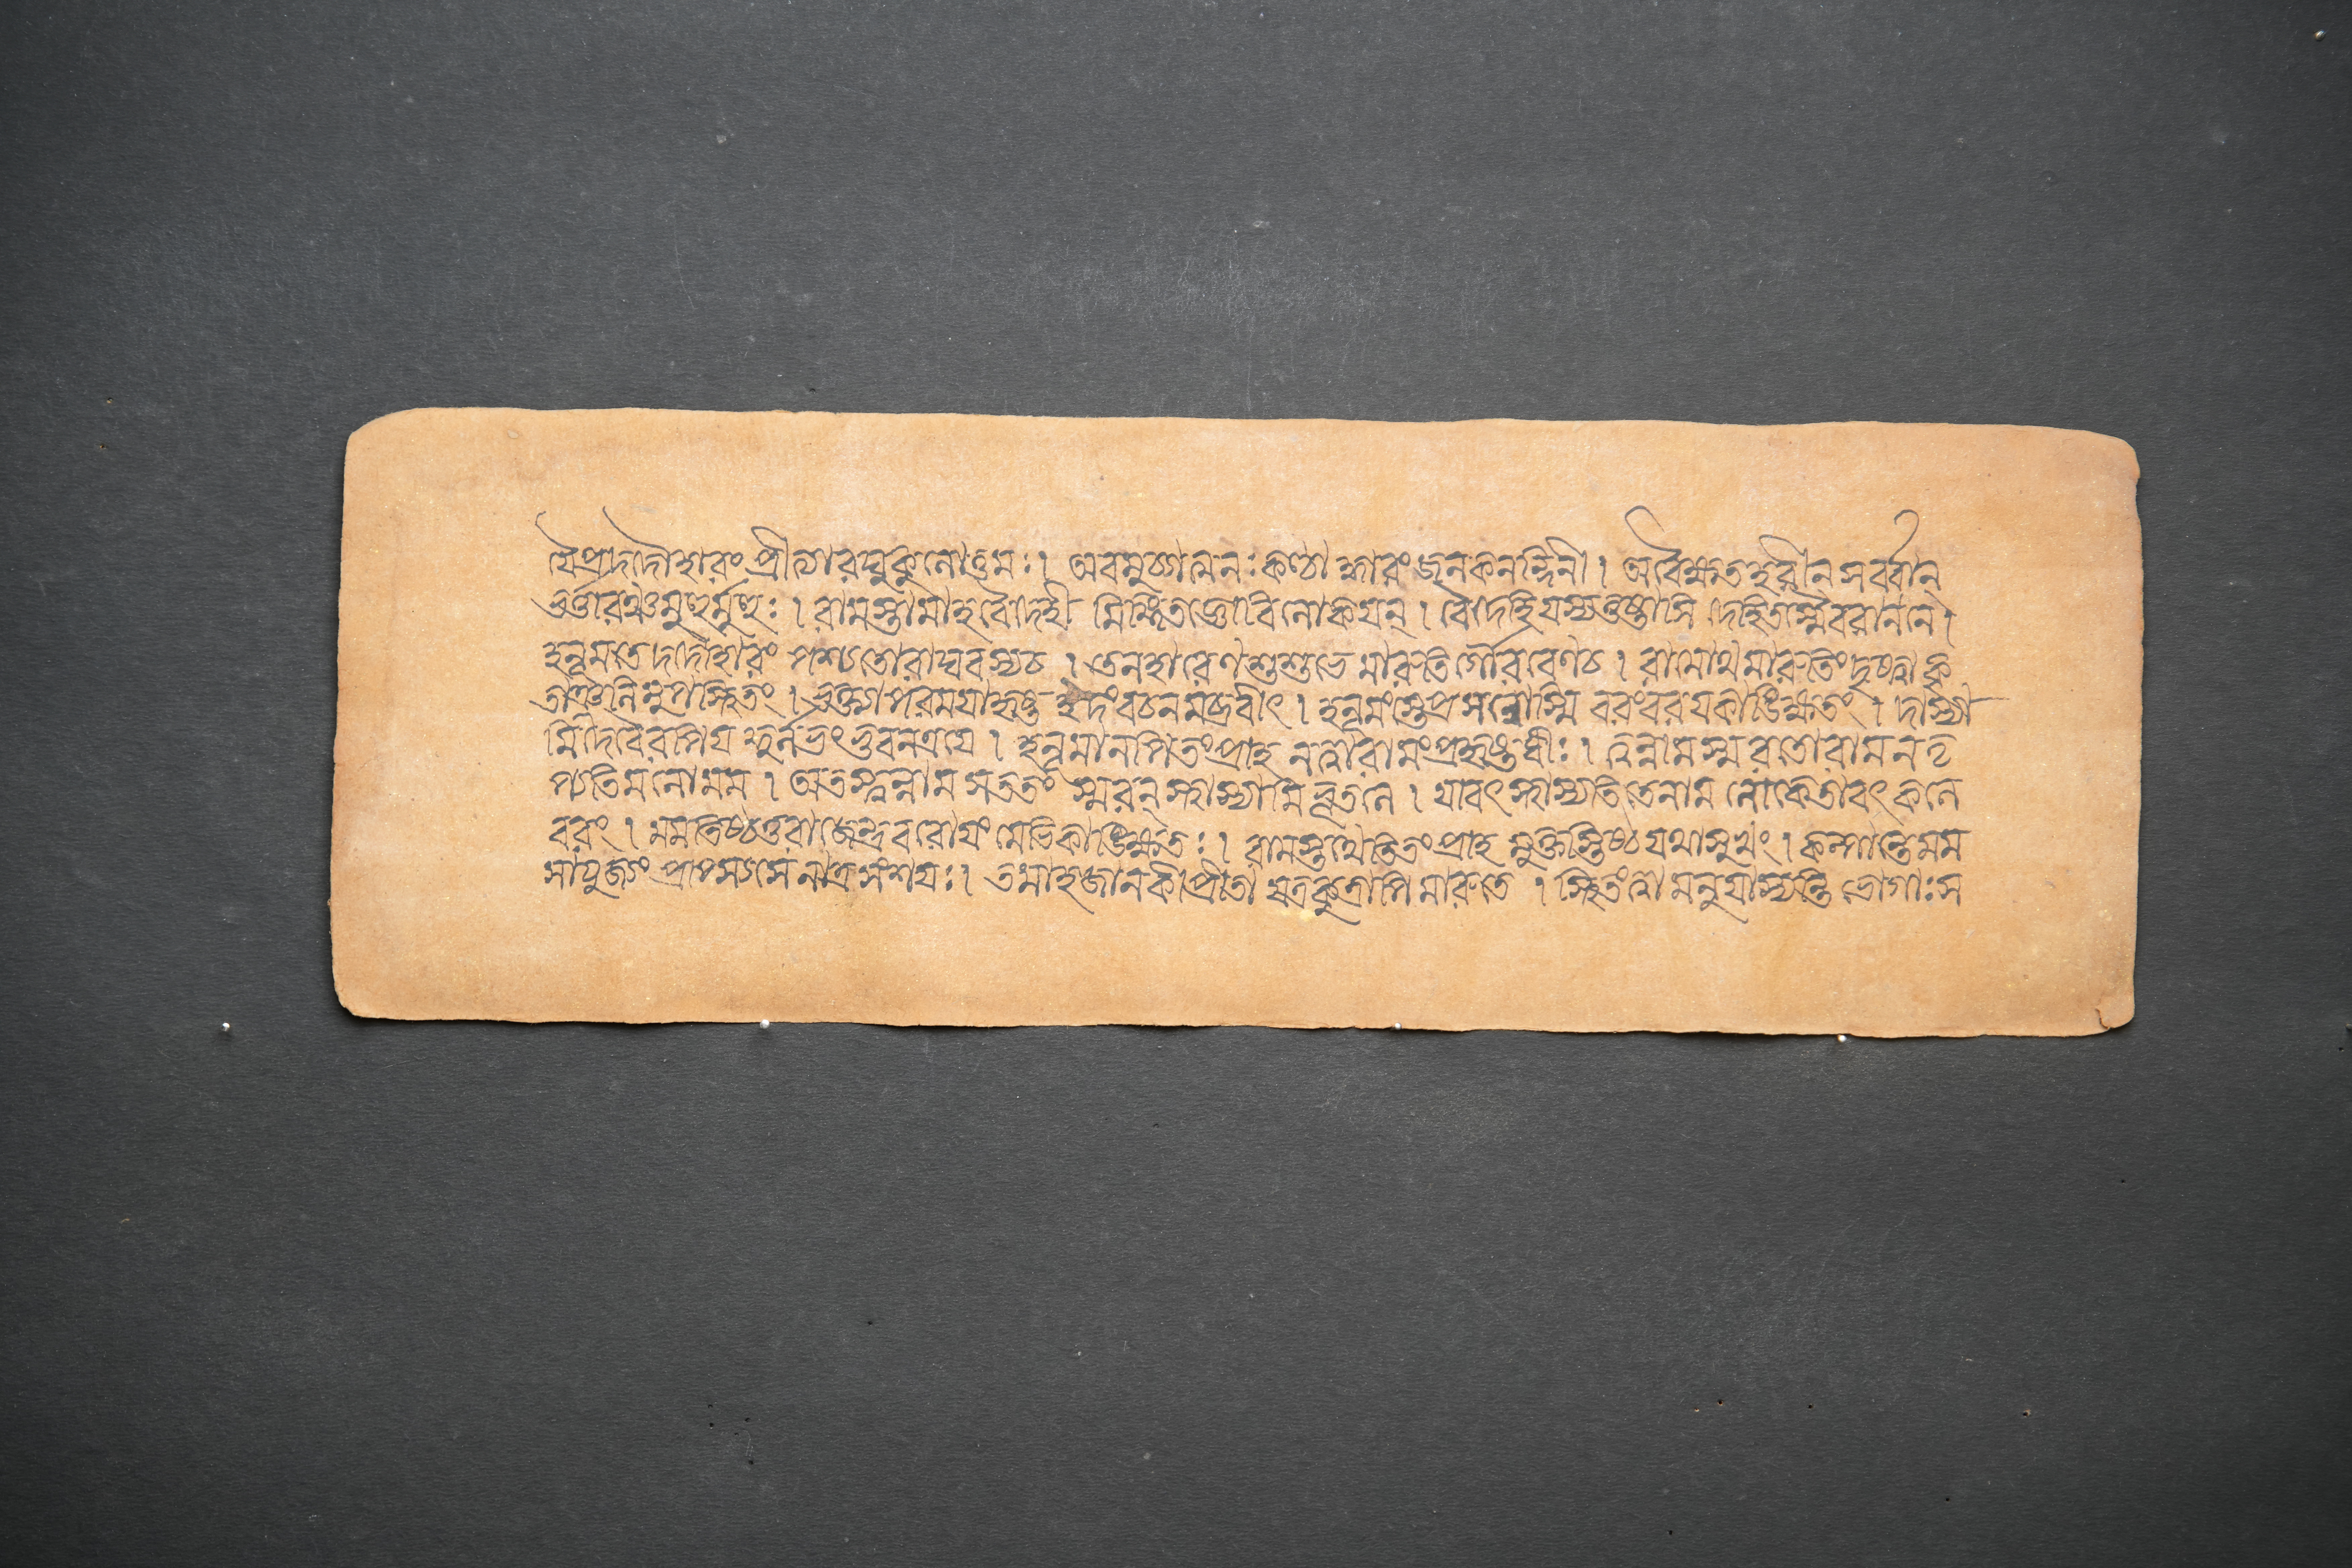 যৈপ্রদদৌহারং প্রীত্যারঘুকুলোত্তমঃ। অবমুচ্যাত্মনঃকণ্ঠাদ্ধারংজনকনন্দিনী। অবৈক্ষতহরীনসর্ব্বান্
ভর্ত্তারঞ্চমুহুর্মুহুঃ। রামস্তামাহবৈদেহী মিঙ্গিতজ্ঞোবিলোকয়ন্। বৈদেহিযস্যতুষ্টাসি দেহিতস্মৈবরাননে।
হনূমতেদদৌহারং পশ্যতোরাঘবস্যচ। তেনহারেণশুশুভে মারুতির্গৌরবেণচ। রামোথমারুতিংদৃষ্ট্বা কৃ
তাঞ্জলিমুপস্থিতং। ভক্ত্যাপরময়াহৃষ্ট ইদংবচনমব্রবীৎ। হনূমংস্তেপ্রসন্নোস্মি বরংবরয়কাঙ্ক্ষিতং। দাস্যা
মিদেবৈরপিয দ্দুর্লভংভুবনত্রয়ে। হনূমানপিতংপ্রাহ নত্বারামংপ্রহৃষ্টধীঃ। ত্বন্নামস্মরতোরাম নতৃ
প্যতিমনোমম। অতস্ত্বন্নাম সততং স্মরন্স্থাস্যামিভূতলে। যাবৎস্থাস্যতিতেনাম লোকেতাবৎকলে
বরং। মমতিষ্ঠতুরাজেন্দ্র বরোয়ং মেভিকাঙ্ক্ষিতঃ। রামস্তথেতিতংপ্রাহ মুক্তিস্তিষ্ঠযথাসুখং। কল্পান্তেমম
সাযুজ্যং প্রাপ্স্যসে নাত্রসংশয়ঃ। তমাহজানকীপ্রীতা যত্রকুত্রাপি মারুতে। স্থিতংত্বা মনুযাস্যন্তি ভোগাঃস